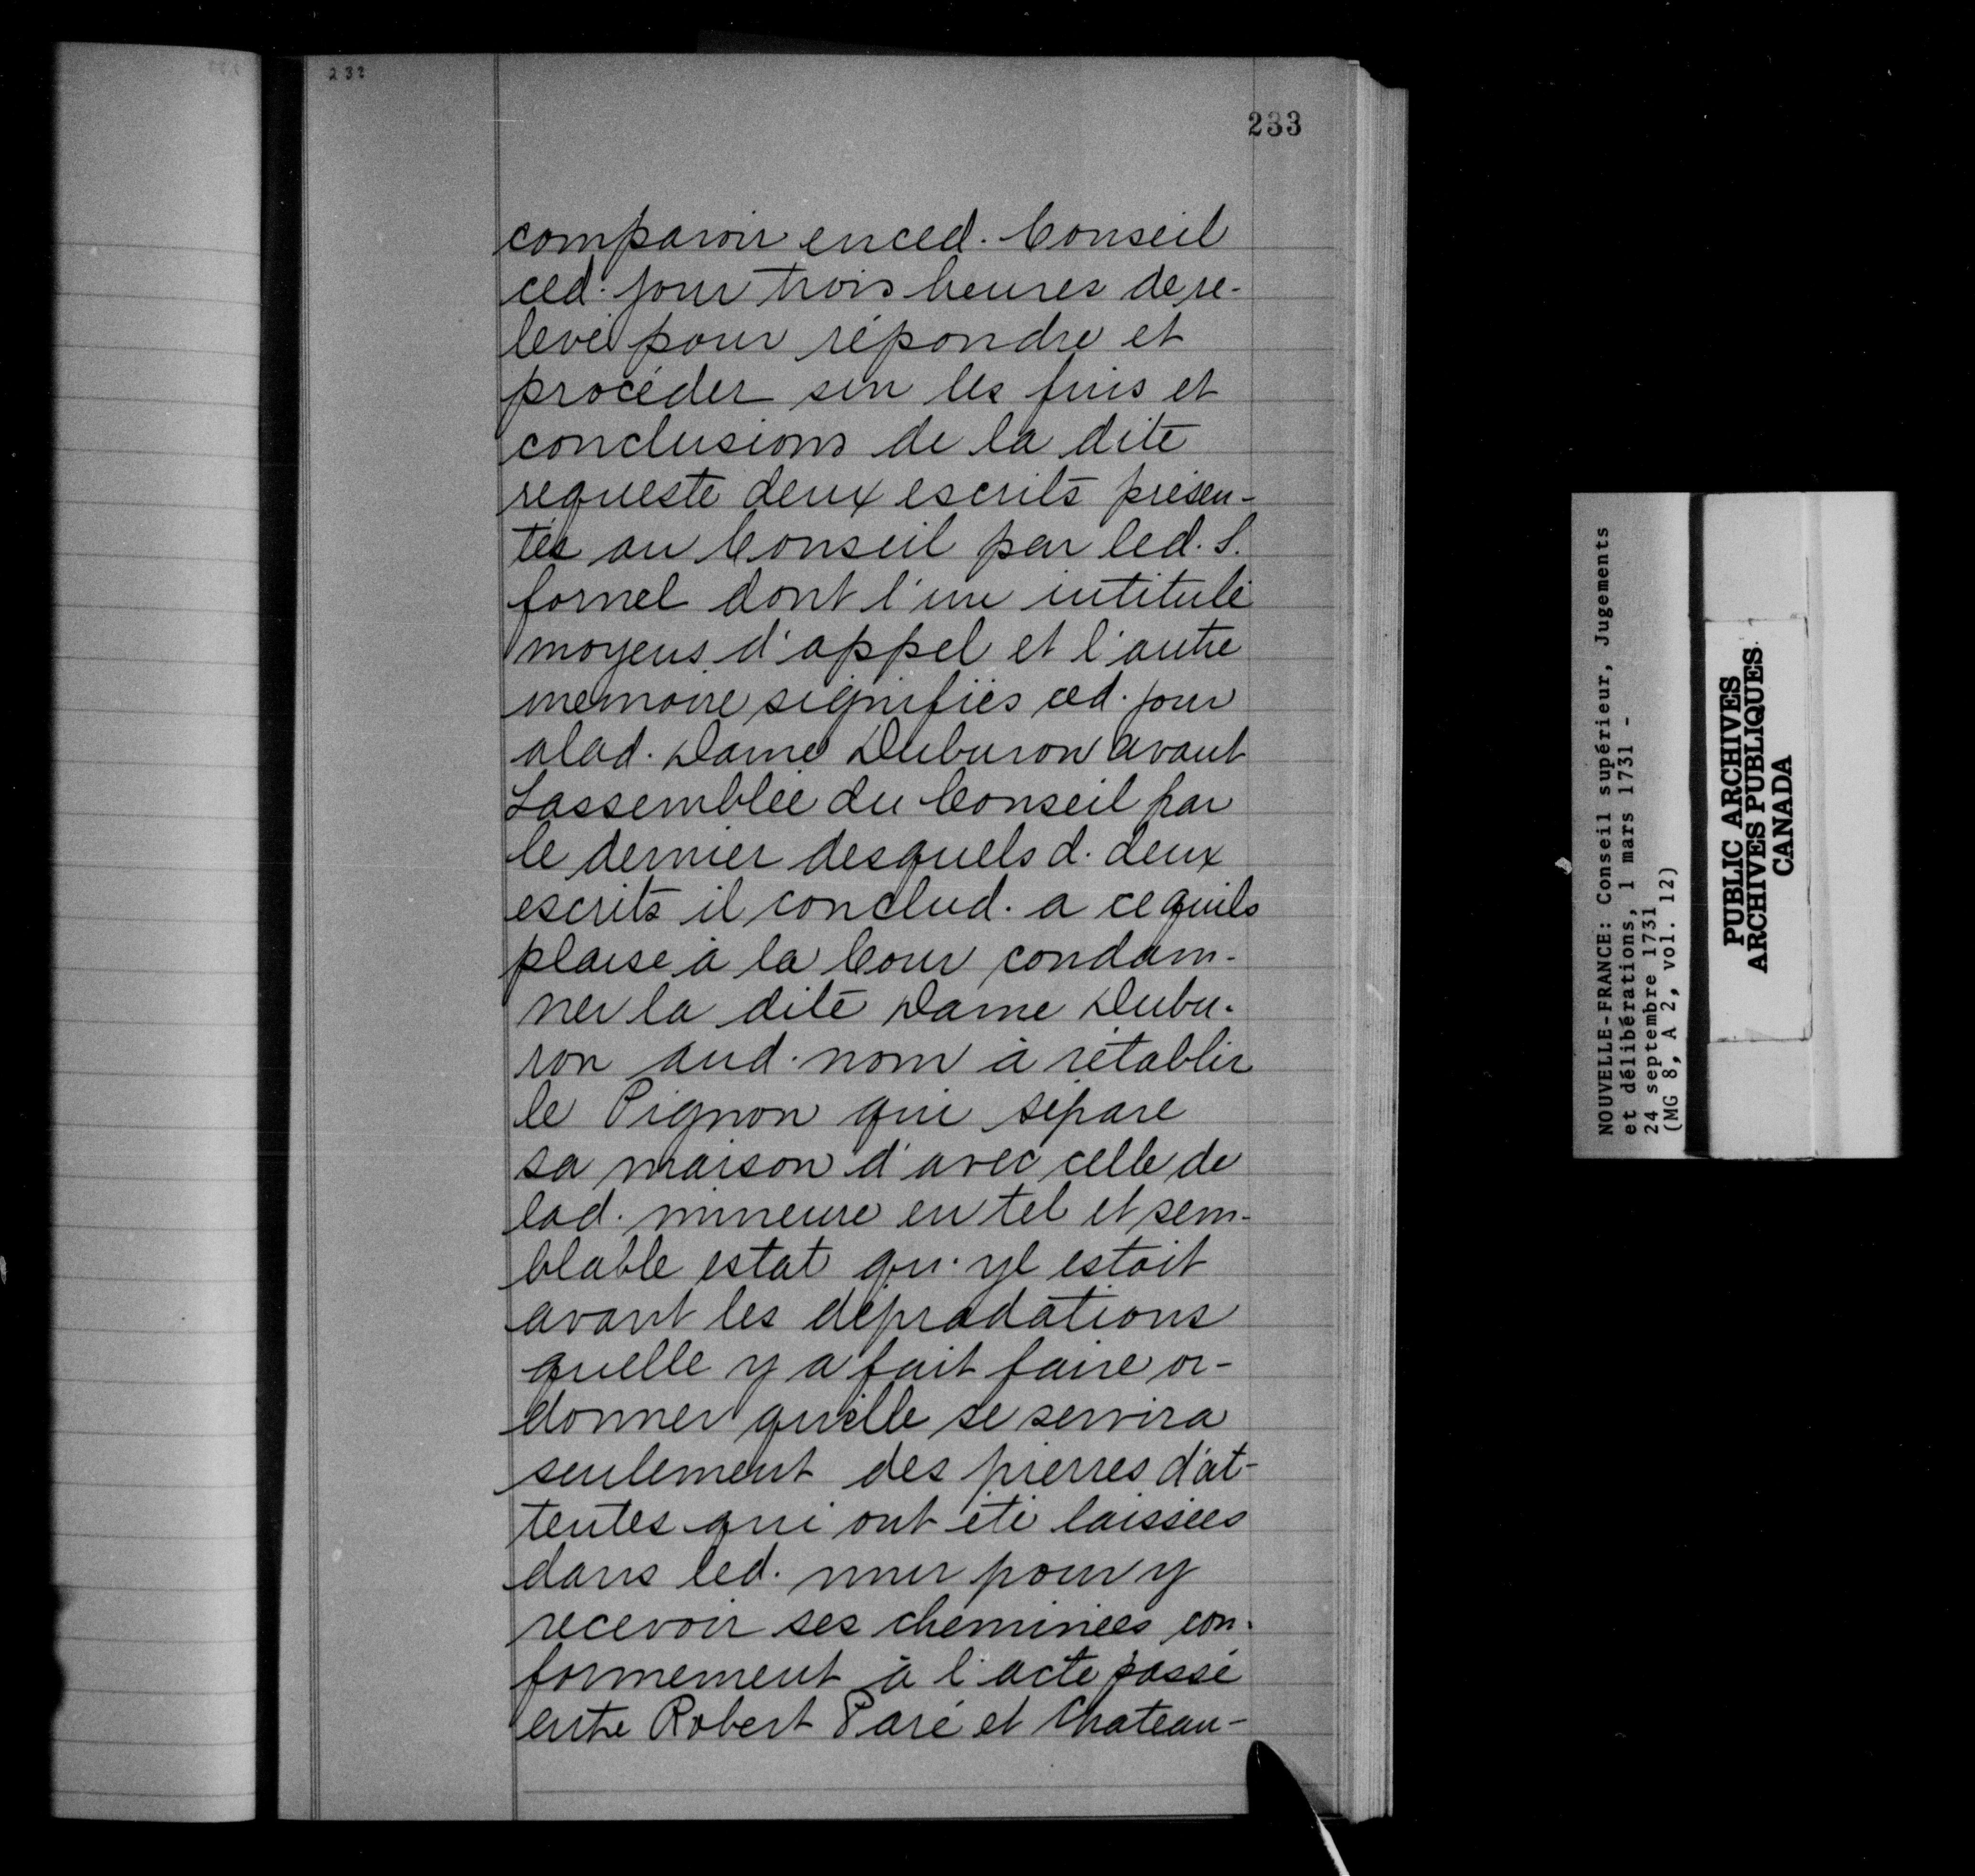 232
233
comparoir enced. Conseil
ced. jour trois heures de re-
levé pour répondre et
procéder sur les fins et
conclusions de la dite
requeste deux escrits présen-
tés au Conseil par led. S.
fornel dont l'un intitulé
moyens d'appel et l'autre
memoire signifiés ced. jour
alad. Dame Duburon avant
Lassemblée du Conseil par
le dernier desquels d. deux
escrits il conclud. a ce quils
plaise à la Cour condam-
ner la dite Dame Dubu-
ron aud. nom à rétablir
le Pignon qui sépare
sa maison d'avec celle de
lad. mineure en tel et sem-
blable estat qu'yl estoit
avant les dépradations
quelle y a fait faire or-
donner qu'elle se servira
seulement des pierres d'at-
tentes qui ont été laissées
dans led. mur pour y
recevoir ses cheminées con-
formement à l'acte passé
entre Robert Paré et Chateau-
NOUVELLE-FRANCE: Conseil supérieur, Jugements
et délibérations, 1 mars 1731 -
24 septembre 1731
(MG 8, A 2, vol. 12)
PUBLIC ARCHIVES
ARCHIVES PUBLIQUES
CANADA